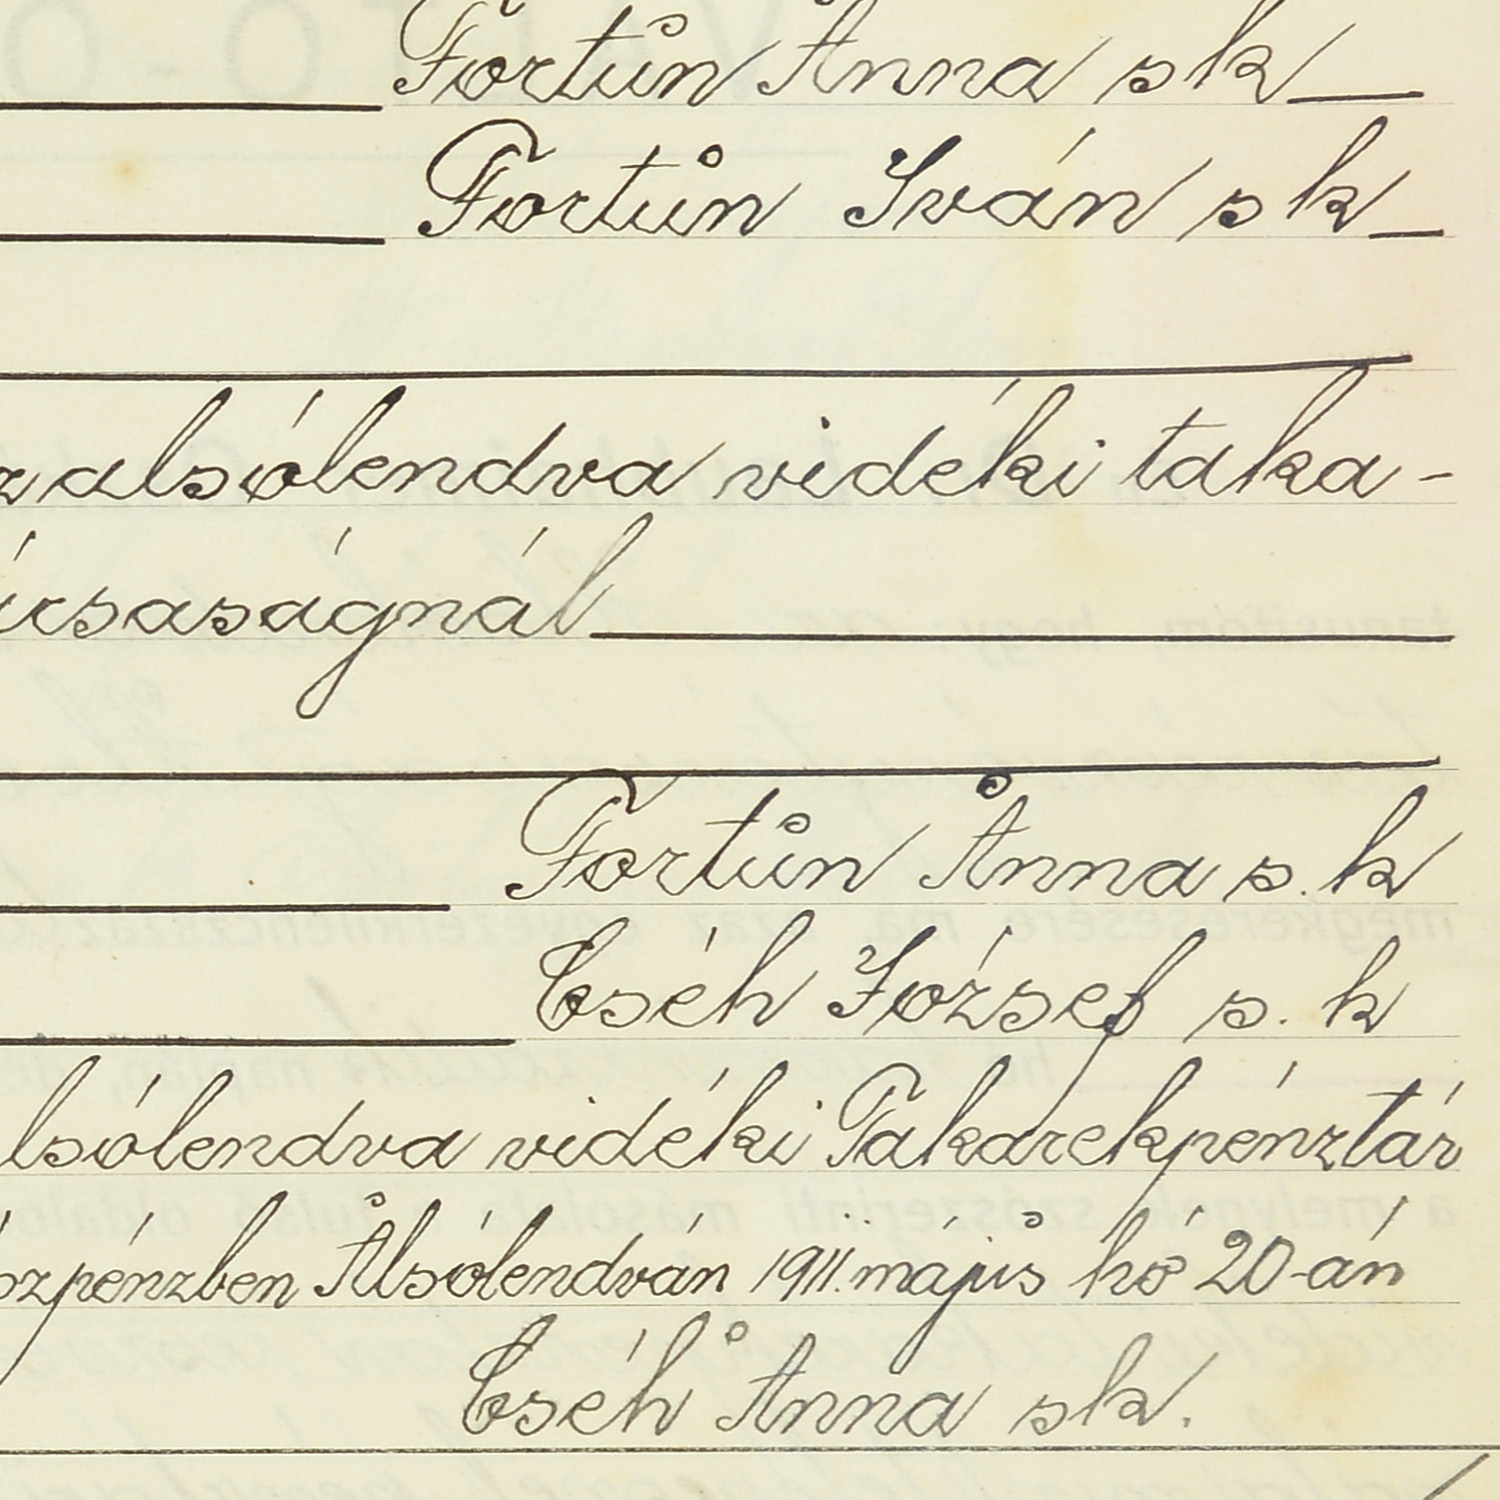 Fortun Anna sk
Fortun Iván sk
alsólendva vidéki taka-
ársaságnál
Fortun Anna s.k
Cséh József s. k
lsólendva vidéki Takarekpénztár
pénzben Alsólendván 1911. május hó 20-án
Cséh Anna sk.